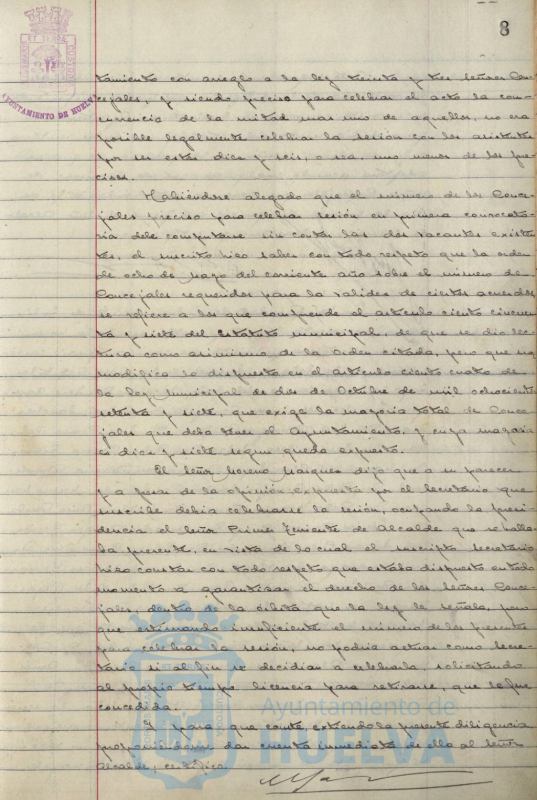 8
AYUNTAMIENTO DE HUELVA
tamiento con arreglo a la ley treinta y tres señores Con-
cejales, y siendo preciso para celebrar el acto la con-
currencia de la mitad mas uno de aquellos, no era
posible legalmente celebrar la sesión con los asistentes
por ser estos diez y seis, o sea, uno menos de los pre-
cisos.
Habiéndose alegado que el número de los Conce-
jales preciso para celebrar sesión en primera convocato-
ria debe computarse sin contar las dos vacantes existen-
tes, el suscrito hizo saber con todo respeto que la orden
de ocho de mayo del corriente año sobre el número de
Concejales requeridos para la validez de ciertos acuerdos
se refiere a los que comprende el artículo ciento cincuen-
ta y siete del Estatuto municipal, de que se dio lec-
tura como asimismo de la Orden citada, pero que no
modifica lo dispuesto en el artículo ciento cuatro de
la ley Municipal de dos de Octubre de mil ochocientos
setenta y siete, que exige la mayoria total de Conce-
jales que deba tener el Ayuntamiento, y cuya mayoria
es diez y siete segun queda expuesto.
El señor Moreno Marquez dijo que a su parecer
y a pesar de la opinión expuesta por el Secretario que
suscribe debia celebrarse la sesión, ocupando la presi-
dencia el señor Primer Teniente de Alcalde que se halla-
ba presente, en vista de lo cual el suscripto secretario
hizo constar con todo respeto que estaba dispuesto en todo
momento a garantizar el derecho de los señores Conce-
jales, dentro de la órbita que la ley le señala, pero
que estimando insuficiente el número de los presentes
para celebrar la sesión, no podria actuar como Secre-
tario si al fin se decidian a celebrarla, solicitando
al propio tiempo licencia para retirarse, que le fue
concedida.
Y para que conste, extiendo la presente diligencia
proponiéndome dar cuenta inmediata de ella al señor
Alcalde, certifico.
Ayuntamiento de
HUELVA